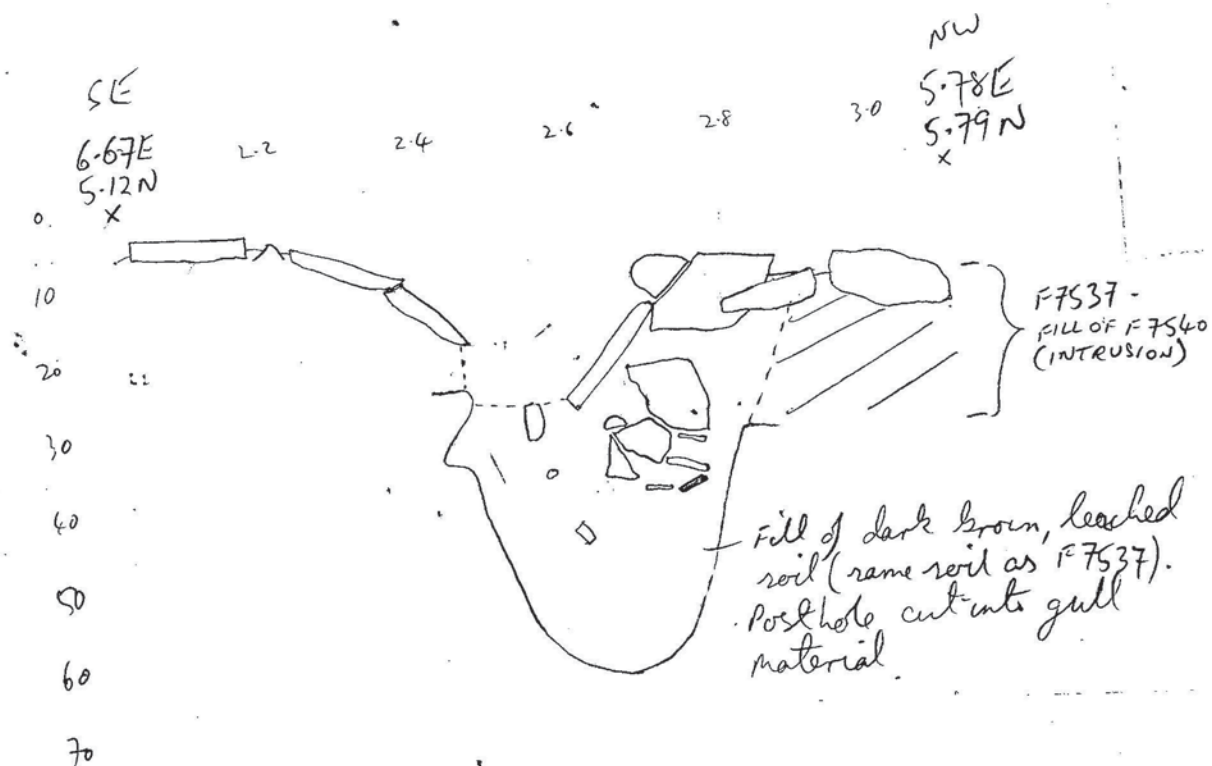 NW
SE
5.78E
5.79N
x
6.67E
5.12N
x
2.2 2.4 2.6 2.8 3.0
0
10
20
30
40
50
60
70
F7537 -
FILL OF F7540
(INTRUSION)
Fill of dark brown, leached
soil (same soil as F7537).
Posthole cut into gull
material.